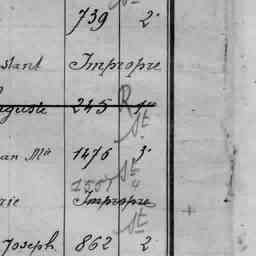 739 2
stant Impropre
245 R
St
ean Mie 1476 3
St
1551 4
rie Impropre
St
Joseph 862 2